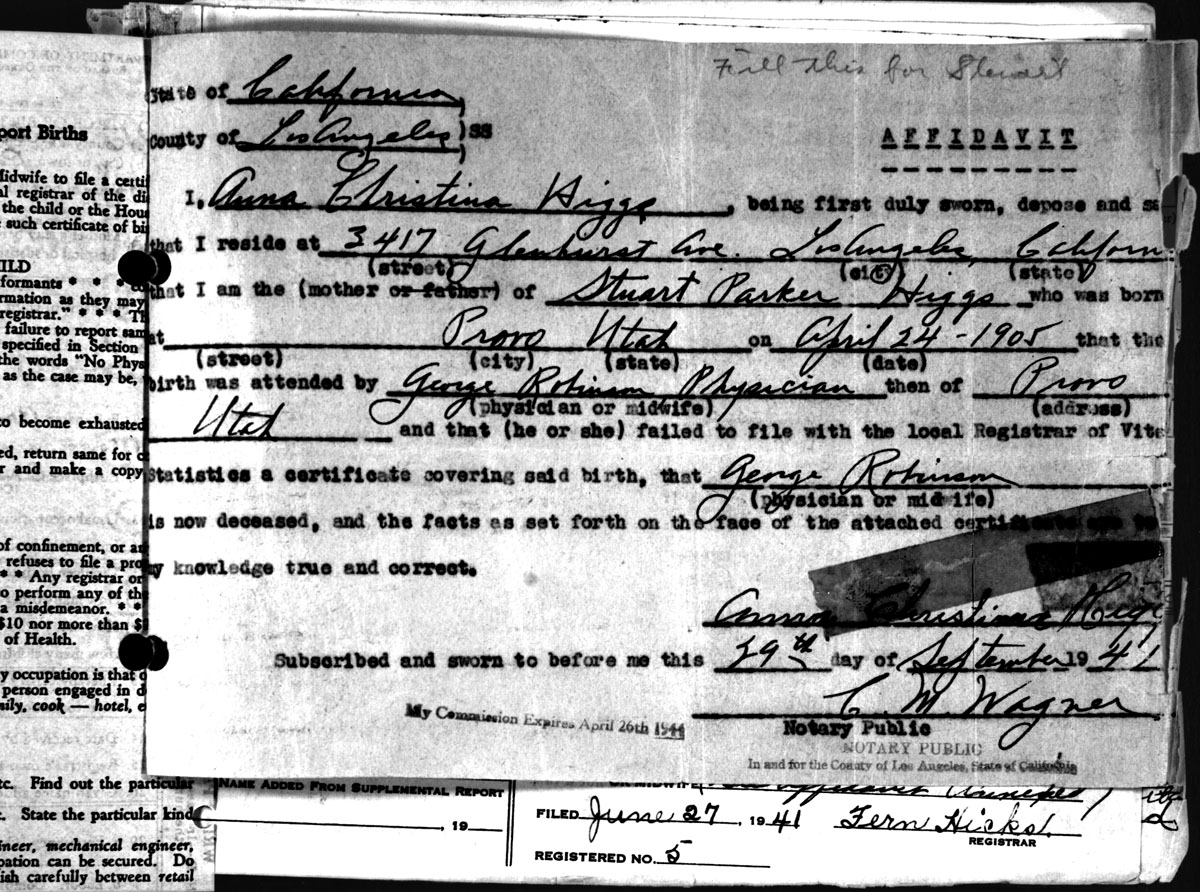 Fill this for Stewart
State of California )
County of Los Angeles )SS
AFFIDAVIT
I, Anna Christina Higgs, being first duly sworn, depose and sa
that I reside at 3417 Glenhurst Ave. Los Angeles, Californ
(street) (city) (state)
that I am the (mother or father) of Stuart Parker Higgs who was born
at Provo Utah on April 24-1905 that the
(street) (city) (state) (date)
birth was attended by George Robinson Physician then of Provo
(physician or midwife) (address)
Utah and that (he or she) failed to file with the local Registrar of Vita
Statistics a certificate covering said birth, that George Robinson
(physician or midwife)
is now deceased, and the facts as set forth on the face of the attached certificate are to
my knowledge true and correct.
Anna Christina Higg
Subscribed and sworn to before me this 29th day of September 1941
C. M. Wagner
My Commission Expires April 26th 1944
Notary Public
NOTARY PUBLIC
In and for the County of Los Angeles, State of California
port Births
Midwife to file a certi
al registrar of the di
the child or the Hou
such certificate of bi
ILD
formants * * *
rmation as they may
registrar." * * * Th
failure to report sam
specified in Section
the words "No Phys
as the case may be,
to become exhausted
ed, return same for
r and make a copy
of confinement, or an
refuses to file a pro
* * Any registrar or
o perform any of the
a misdemeanor. * *
$10 nor more than $
of Health.
y occupation is that o
person engaged in d
mily, cook — hotel, e
tc. Find out the particular
. State the particular kind
ineer, mechanical engineer,
pation can be secured. Do
ish carefully between retail
NAME ADDED FROM SUPPLEMENTAL REPORT
, 19
OR MIDWIFE
affidavit annexed
FILED June 27, 1941 Fern Hicks
REGISTRAR
REGISTERED NO. 5